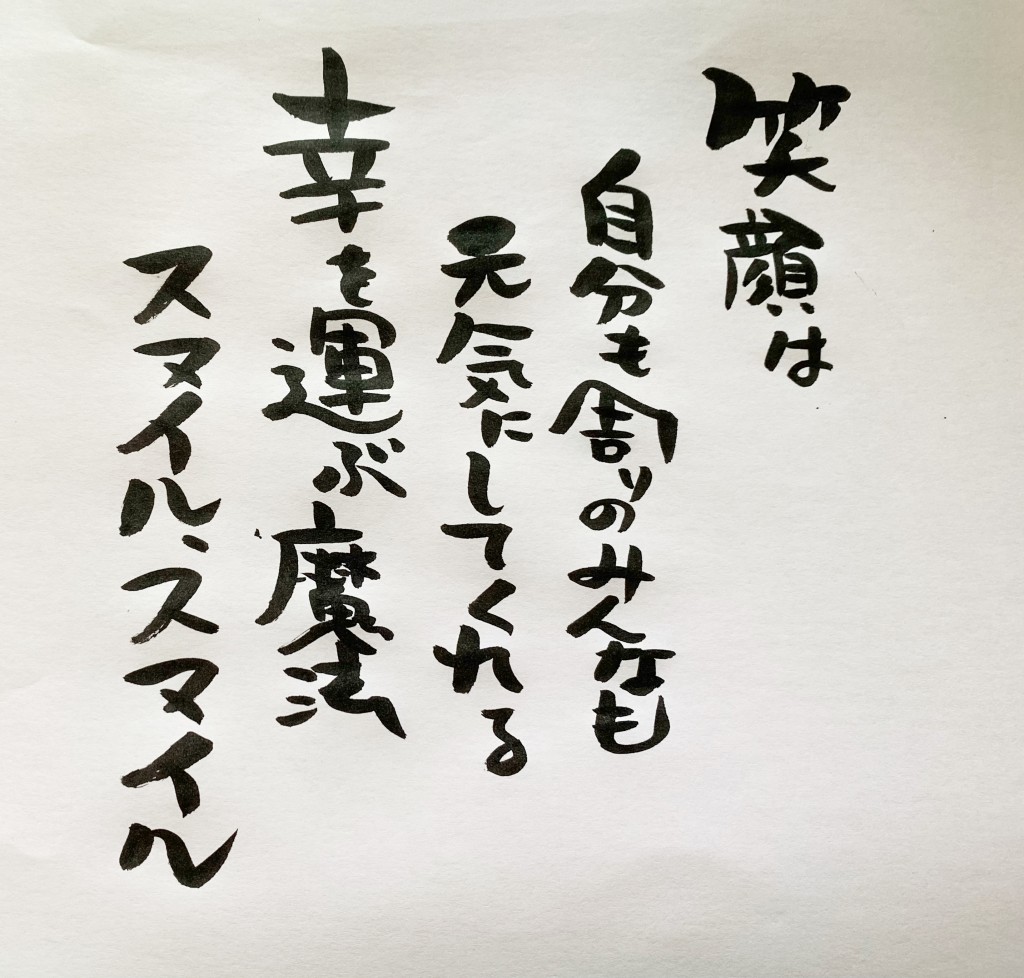 笑顔は
自分も周りのみんなも
元気にしてくれる
幸を運ぶ魔法
スマイル、スマイル